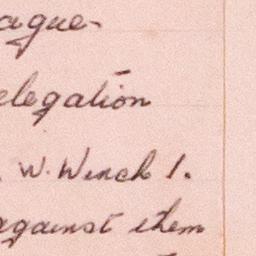 ague-
elegation
W. Winch 1.
against them